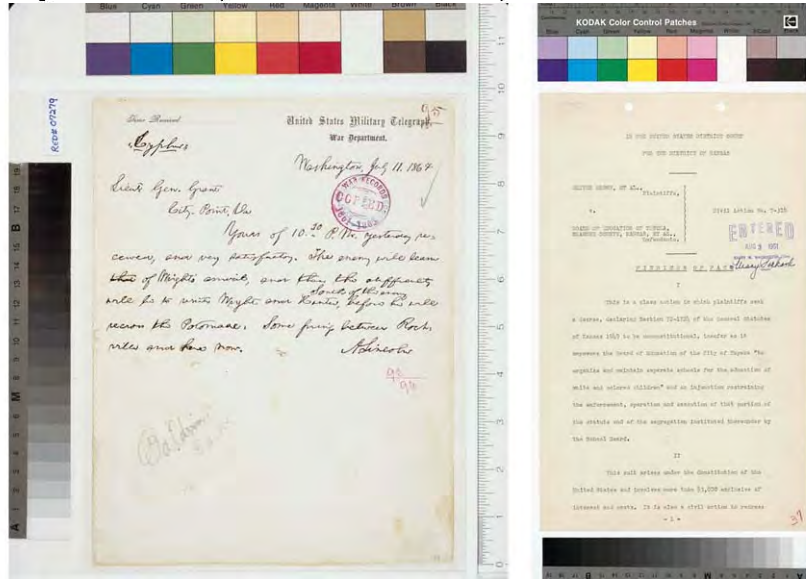 Blue Cyan Green Yellow Red Magenta White Brown Black
Time Received
United States Military Telegraph,
War Department.
95
Cypher
Washington, July 11. 1864
Lieut Gen. Grant
City-Point, Va
WAR RECORDS
COPIED
1861-1865
Yours of 10.30 P.M. yesterday re-
ceived, and very satisfactory. The enemy will learn
of Wright's arrival, and then the difficulty
south of the enemy
will be to unite Wright and Hunter, before he will
recross the Potomac. Some firing between Rock-
ville and here now.
A. Lincoln
92
Baldwin
KODAK Color Control Patches
Kodak
Blue Cyan Green Yellow Red Magenta White 3/Color Black
IN THE UNITED STATES DISTRICT COURT
FOR THE DISTRICT OF KANSAS
OLIVER BROWN, ET AL.,
Plaintiffs,
v.
Civil Action No. T-316
BOARD OF EDUCATION OF TOPEKA,
SHAWNEE COUNTY, KANSAS, ET AL.,
Defendants.
ENTERED
AUG 3 1951
FINDINGS OF FACT
I
This is a class action in which plaintiffs seek
a decree, declaring Section 72-1724 of the General Statutes
of Kansas 1949 to be unconstitutional, insofar as it
empowers the Board of Education of the City of Topeka "to
organize and maintain separate schools for the education of
white and colored children" and an injunction restraining
the enforcement, operation and execution of that portion of
the statute and of the segregation instituted thereunder by
the School Board.
II
This suit arises under the Constitution of the
United States and involves more than $3,000 exclusive of
interest and costs. It is also a civil action to redress
- 1 -
37